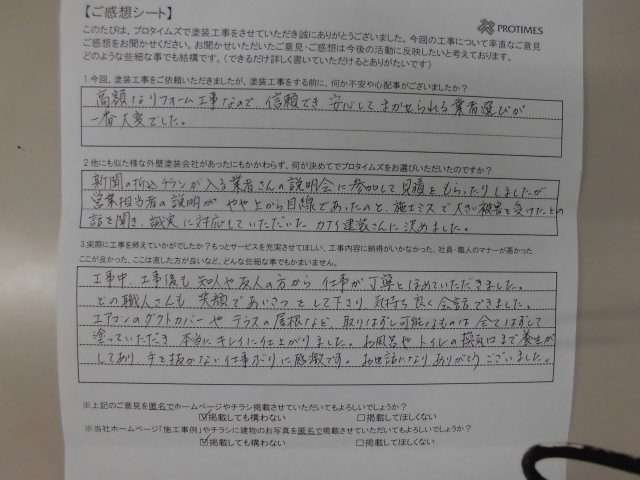 【ご感想シート】
PROTIMES
このたびは、プロタイムズで塗装工事をさせていただき誠にありがとうございました。今回の工事について率直なご意見
ご感想をお聞かせください。お聞かせいただいたご意見・ご感想は今後の活動に反映したいと考えております。
どのような些細な事でも結構です。(できるだけ詳しく書いていただけるとありがたいです)
1.今回、塗装工事をご依頼いただきましたが、塗装工事をする前に、何か不安や心配事がございましたか?
高額なリフォーム工事なので、信頼でき 安心して まかせられる業者選びが
一番大変でした。
2.他にも似た様な外壁塗装会社があったにもかかわらず、何が決めてでプロタイムズをお選びいただいたのですか?
新聞の折込チラシが入る業者さんの説明会に参加して見積をもらったりしましたが、
営業担当者の説明が やや上から目線であったのと、施工ミスで大きい被害を受けたとの
話を聞き、誠実に対応していただいた カナイ建装さんに 決めました。
3.実際に工事を終えていかがでしたか?もっとサービスを充実させてほしい、工事内容に納得がいかなかった、社員・職人のマナーが悪かった
ここが良かった、ここは直した方が良いなど、どんな些細な事でもかまいません。
工事中、工事後も 知人や友人の方から 仕事が丁寧とほめていただきました。
どの職人さんも 笑顔であいさつをして下さり、気持ち良く会話できました。
エアコンのダクトカバーや テラスの屋根など、取りはずし可能なものは 全てはずして
塗っていただき 本当に キレイに仕上がりました。お風呂やトイレの換気口まで養生が
してあり、手を抜かない仕事ぶりに感激です。 お世話になり ありがとうございました。
※上記のご意見を匿名でホームページやチラシ掲載させていただいてもよろしいでしょうか?
☑掲載しても構わない □掲載してほしくない
※当社ホームページ「施工事例」やチラシに建物のお写真を匿名で掲載させていただいてもよろしいでしょうか?
☑掲載しても構わない □掲載してほしくない